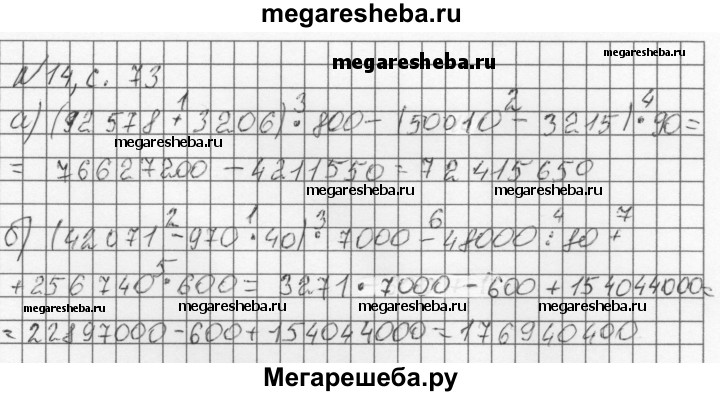 megaresheba.ru
megaresheba.ru
megaresheba.ru
№14, с. 73
1 3 2 4
а) (92578 + 3206) · 800 - (50010 - 3215) · 90 =
megaresheba.ru
= 76627200 - 4211550 = 72415650
megaresheba.ru megaresheba.ru
2 1 3 6 4 7
б) (42071 - 970 · 40) · 7000 - 48000 : 80 +
5
+ 256740 · 600 = 3271 · 7000 - 600 + 154044000 =
megaresheba.ru megaresheba.ru megaresheba.ru megaresheba.ru
= 22897000 - 600 + 154044000 = 176940400
Мегарешеба.ру